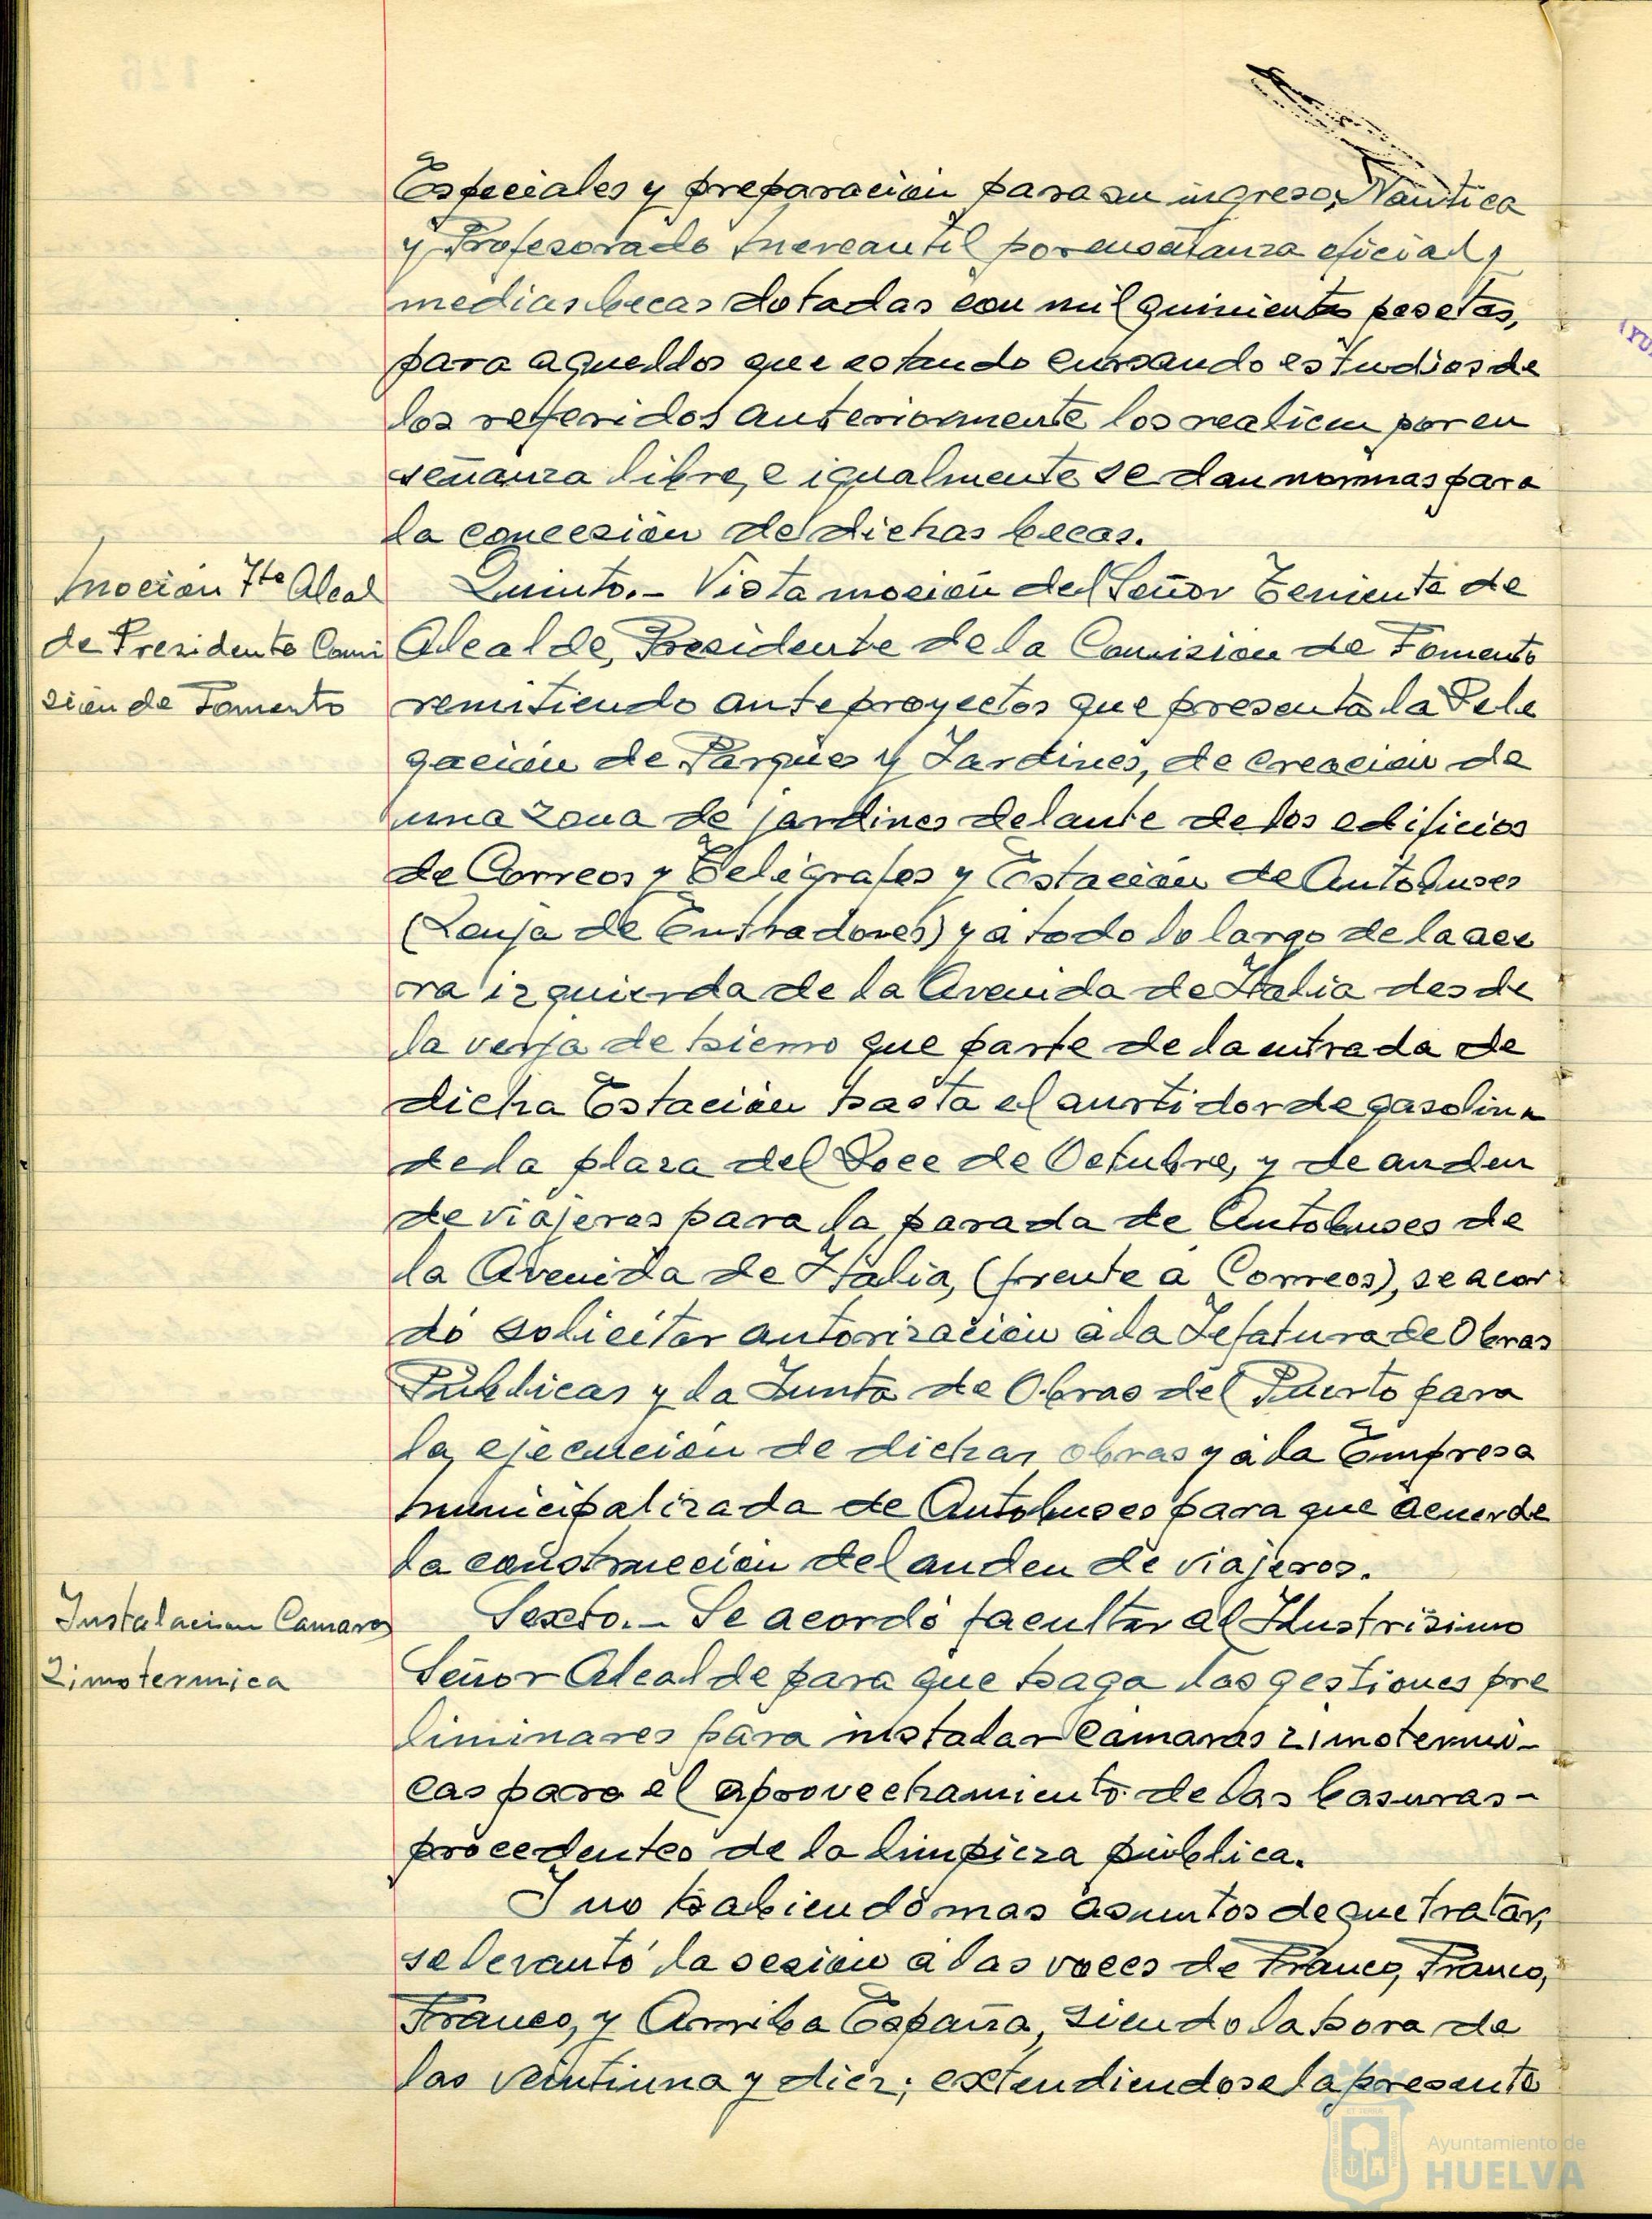 Especiales y preparación para su ingreso, Náutica
y Profesorado Mercantil por enseñanza oficial y
medias becas dotadas con mil quinientas pesetas,
para aquellos que estando cursando estudios de
los referidos anteriormente los realicen por en
señanza libre, e igualmente se dan normas para
la concesión de dichas becas.
Moción Tte Alcal
de Presidente Comi
sión de Fomento
Quinto.- Vista moción del Señor Teniente de
Alcalde, Presidente de la Comisión de Fomento
remitiendo anteproyectos que presenta la Dele
gación de Parques y Jardines, de creación de
una zona de jardines delante de los edificios
de Correos y Telégrafos y Estación de Autobuses
(Lonja de Entradores) y a todo lo largo de la ace
ra izquierda de la Avenida de Italia desde
la verja de hierro que parte de la entrada de
dicha Estación hasta el surtidor de gasolina
de la plaza del Doce de Octubre, y de anden
de viajeros para la parada de Autobuses de
la Avenida de Italia, (frente a Correos), se acor
dó solicitar autorización a la Jefatura de Obras
Públicas y la Junta de Obras del Puerto para
la ejecución de dichas obras y a la Empresa
municipalizada de Autobuses para que acuerde
la construcción del anden de viajeros.
Instalacion Camaras
Zimotermica
Sexto.- Se acordó facultar al Ilustrísimo
Señor Alcalde para que haga las gestiones pre
liminares para instalar Cámaras zimotermi-
cas para el aprovechamiento de las basuras-
procedentes de la limpieza pública.
Y no habiendo mas asuntos de que tratar,
se levantó la sesión a las voces de Franco, Franco,
Franco, y Arriba España, siendo la hora de
las veintiuna y diez; extendiendose la presente
Ayuntamiento de
HUELVA